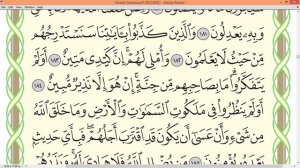 Mushaf Madina.pdf (SECURED) - Adobe Reader
وَبِهِۦ يَعْدِلُونَ ١٨١ وَٱلَّذِينَ كَذَّبُوا۟ بِـَٔايَـٰتِنَا سَنَسْتَدْرِجُهُم
مِّنْ حَيْثُ لَا يَعْلَمُونَ ١٨٢ وَأُمْلِى لَهُمْ إِنَّ كَيْدِى مَتِينٌ ١٨٣ أَوَلَمْ
يَتَفَكَّرُوا۟ مَا بِصَاحِبِهِم مِّن جِنَّةٍ إِنْ هُوَ إِلَّا نَذِيرٌ مُّبِينٌ ١٨٤
أَوَلَمْ يَنظُرُوا۟ فِى مَلَكُوتِ ٱلسَّمَـٰوَٰتِ وَٱلْأَرْضِ وَمَا خَلَقَ ٱللَّهُ
مِن شَىْءٍ وَأَنْ عَسَىٰٓ أَن يَكُونَ قَدِ ٱقْتَرَبَ أَجَلُهُمْ فَبِأَىِّ حَدِيثٍ